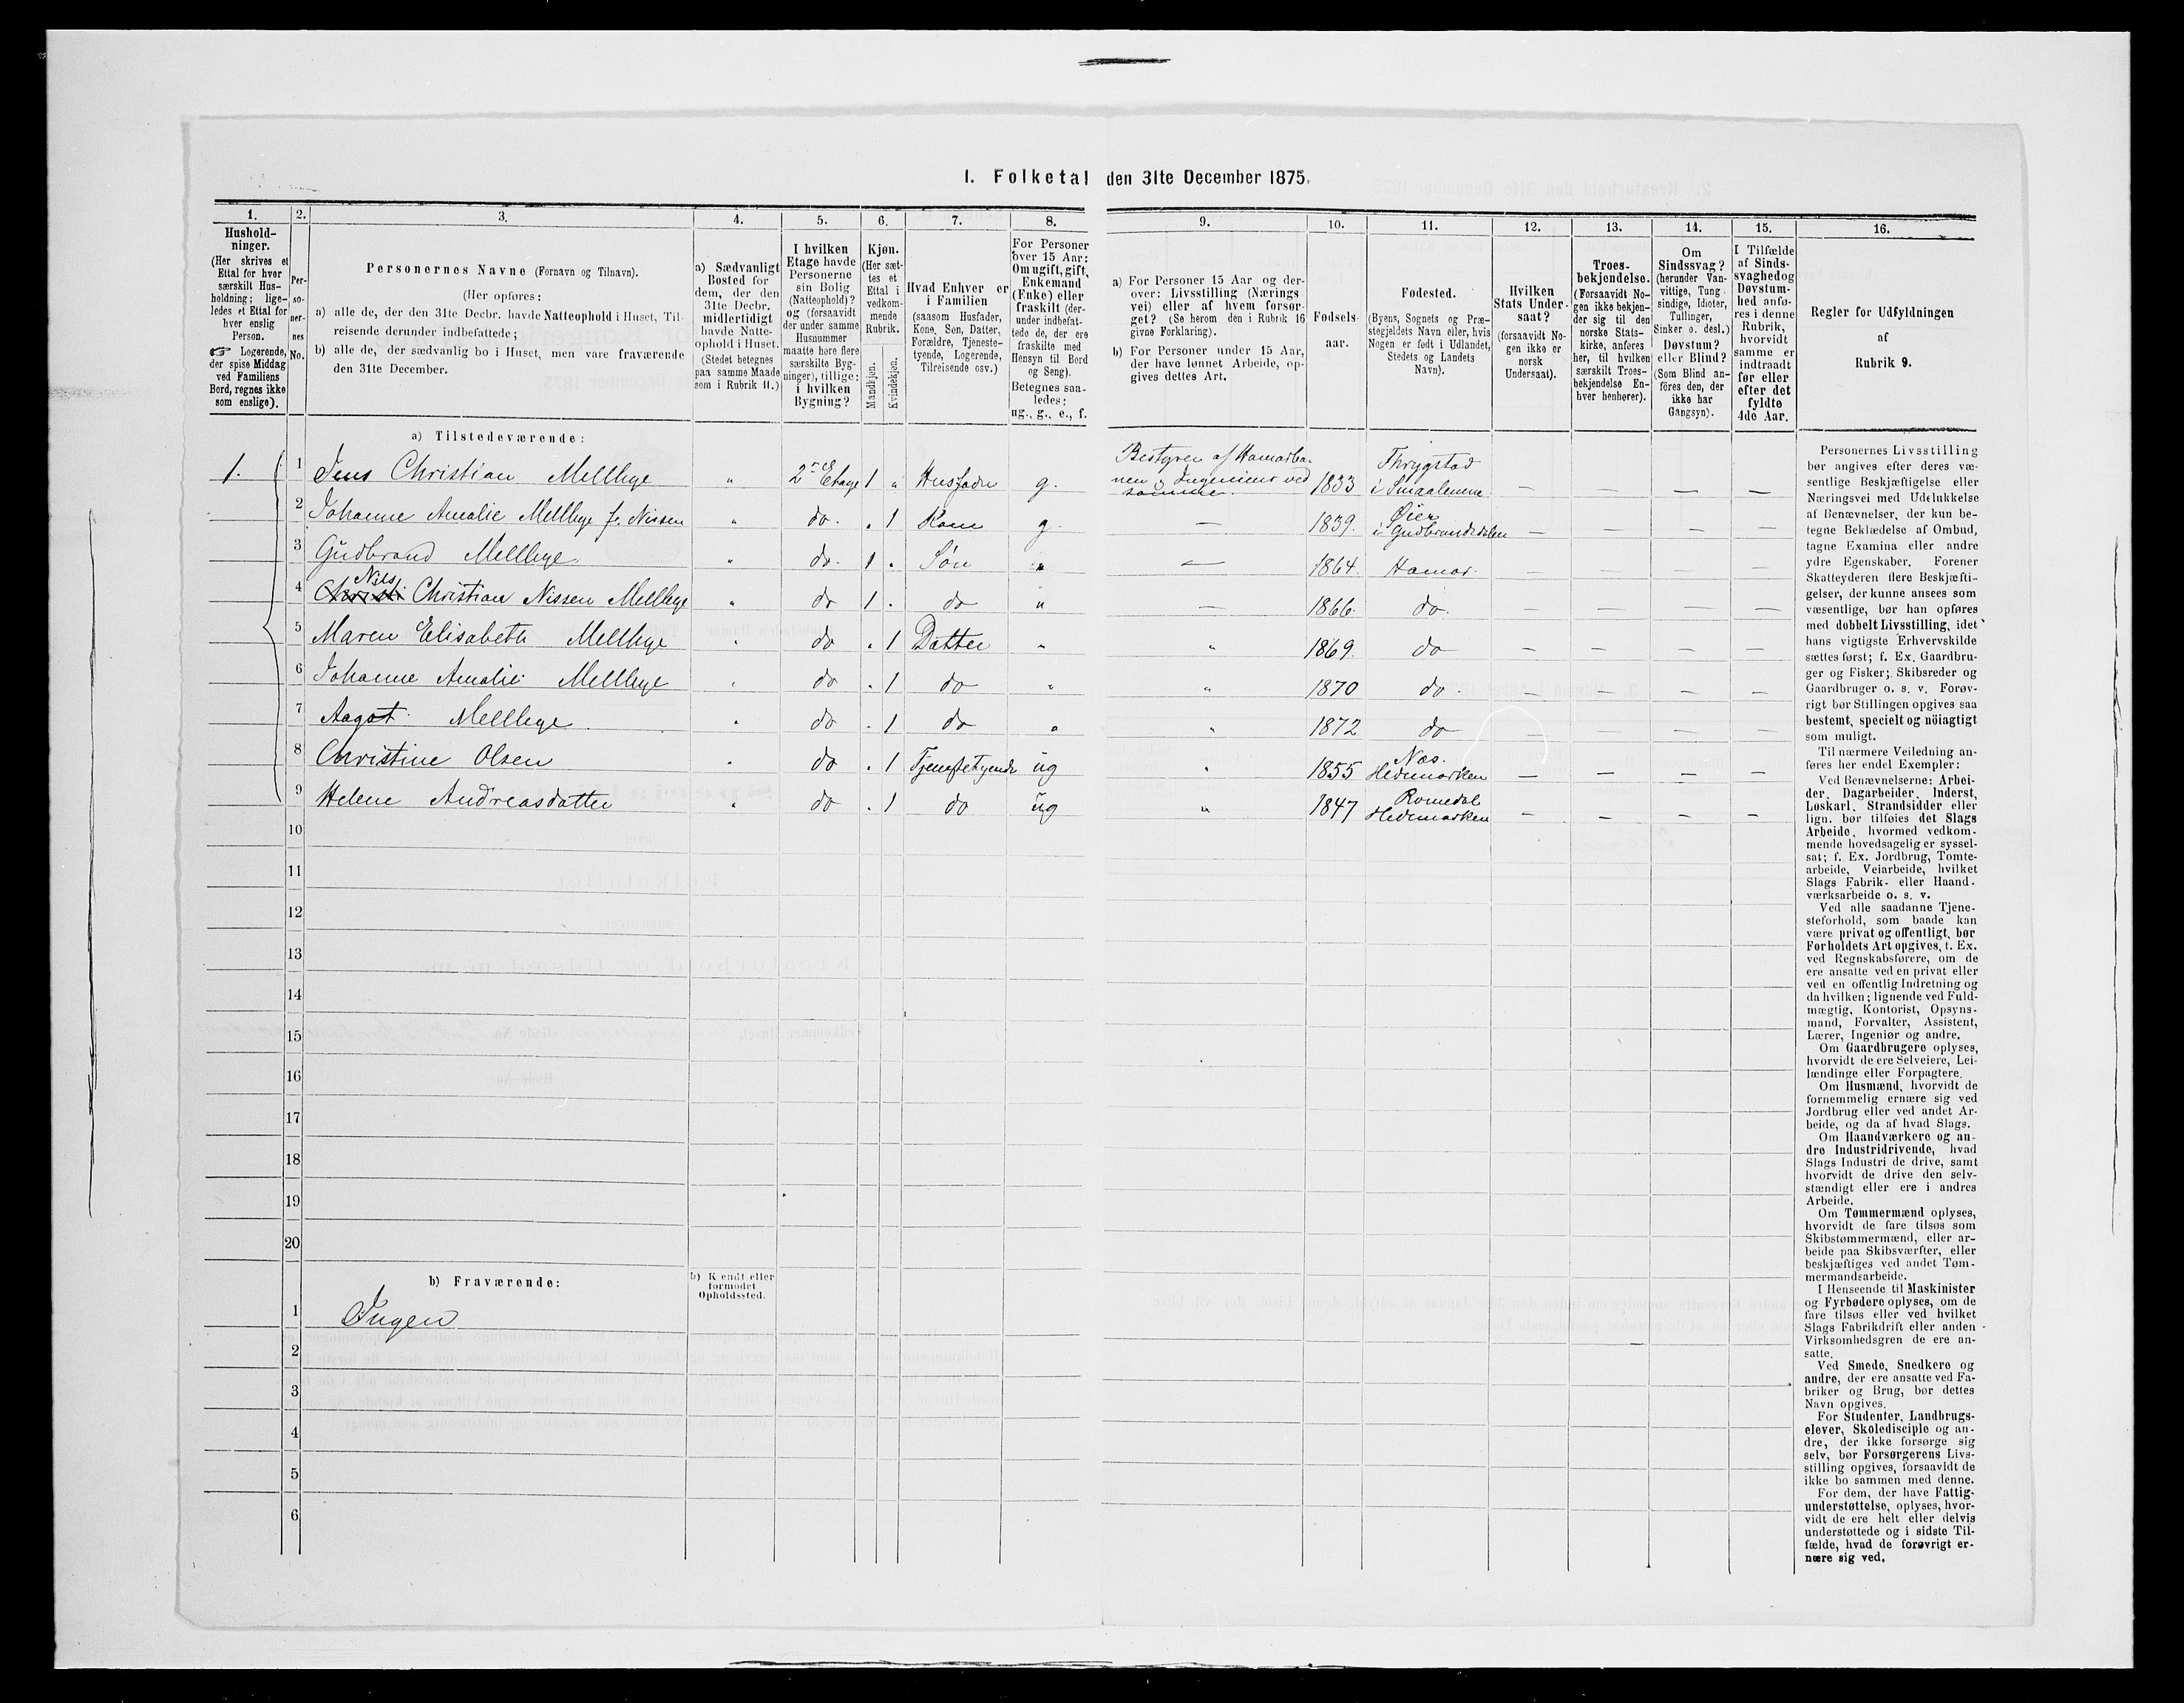 I. Folketal den 31te December 1875.
1. 2. 3. 4. 5. 6. 7. 8. 9. 10. 11. 12. 13. 14. 15. 16.
Hushold-
ninger.
(Her skrives et
Ettal for hver
særskilt Hus-
holdning; lige-
ledes et Ettal for
hver enslig
Person.
☞ Logerende,
der spise Middag
ved Familiens
Bord, regnes ikke
som enslige).
Per-
so-
ner-
nes
No.
Personernes Navne (Fornavn og Tilnavn).
(Her opføres:
a) alle de, der den 31te Decbr. havde Natteophold i Huset, Til-
reisende derunder indbefattede;
b) alle de, der sædvanlig bo i Huset, men vare fraværende
den 31te December.
a) Sædvanligt
Bosted for
dem, der den
31te Decbr.
midlertidigt
havde Natte-
ophold i Huset.
(Stedet betegnes
paa samme Maade
som i Rubrik 11.)
I hvilken
Etage havde
Personerne
sin Bolig
(Natteophold)?
og (forsaavidt
der under samme
Husnummer
maatte høre flere
særskilte Byg-
ninger), tillige:
i hvilken
Bygning?
Kjøn.
(Her sæt-
tes et
Ettal i
vedkom-
mende
Rubrik.
Mandkjøn.
Kvindekjøn.
Hvad Enhver er
i Familien
(saasom Husfader,
Kone, Søn, Datter,
Forældre, Tjeneste-
tyende, Logerende,
Tilreisende osv.)
For Personer
over 15 Aar:
Om ugift, gift,
Enkemand
(Enke) eller
fraskilt (der-
under indbefat-
tede de, der ere
fraskilte med
Hensyn til Bord
og Seng).
Betegnes saa-
ledes:
ug., g., e., f.
a) For Personer 15 Aar og der-
over: Livsstilling (Nærings
vei) eller af hvem forsør-
get? (Se herom den i Rubrik 16
givne Forklaring).
b) For Personer under 15 Aar,
der have lønnet Arbeide, op-
gives dettes Art.
Fødsels-
aar.
Fødested.
(Byens, Sognets og Præ-
stegjeldets Navn eller, hvis
Nogen er født i Udlandet,
Stedets og Landets
Navn).
Hvilken
Stats Under-
saat?
(forsaavidt No-
gen ikke er
norsk
Undersaat).
Troes-
bekjendelse.
(Forsaavidt No-
gen ikke bekjen-
der sig til den
norske Stats-
kirke, anføres
her, til hvilken
særskilt Troes-
bekjendelse En-
hver henhører).
Om
Sindssvag?
(herunder Van-
vittige, Tung-
sindige, Idioter,
Tullinger,
Sinker o. desl.)
Døvstum?
eller Blind?
(Som Blind an-
føres den, der
ikke har
Gangsyn).
I Tilfælde
af Sinds-
svaghed og
Døvstum-
hed anfø-
res i denne
Rubrik,
hvorvidt
samme er
indtraadt
før eller
efter det
fyldte
4de Aar.
Regler for Udfyldningen
af
Rubrik 9.
a) Tilstedeværende:
1. 1 Jens Christian Mellbye " 2den Etage 1 " Husfader g. Bestyrer af Hamarba-
nen & Ingeniør ved
samme. 1833 Thrygstad
i Smaalenene. — — — —
2 Johanne Amalie Mellbye f. Nissen " do. . 1 Kone g. — 1839. Øier
i Gudbrandsdalen — — — —
3 Gudbrand Mellbye " do. 1 . Søn " — 1864. Hamar. — — — —
4 Christi Nils Christian Nissen Mellbye " do 1 . do " — 1866. do. — — — —
5 Maren Elisabeth Mellbye " do . 1 Datter " " 1869. do — — — —
6 Johanne Amalie Mellbye " do . 1 do " " 1870 do. — — — —
7 Aagot Mellbye " do . 1 do " " 1872 do — — — —
8 Christine Olsen " do . 1 Tjenestetyende ug " 1855 Næs.
Hedemarken — — — —
9 Helene Andreasdatter " do . 1 do ug " 1847 Romedal
Hedemarken — — — —
10
11
12
13
14
15
16
17
18
19
20
b) Fraværende:
b) Kjendt eller
formodet
Opholdssted.
1 Ingen
2
3
4
5
6
Personernes Livsstilling
bør angives efter deres væ-
sentlige Beskjæftigelse eller
Næringsvei med Udelukkelse
af Benævnelser, der kun be-
tegne Beklædelse af Ombud,
tagne Examina eller andre
ydre Egenskaber. Forener
Skatteyderen flere Beskjæfti-
gelser, der kunne ansees som
væsentlige, bør han opføres
med dobbelt Livsstilling, idet
hans vigtigste Erhvervskilde
sættes først; f. Ex. Gaardbru-
ger og Fisker; Skibsreder og
Gaardbruger o. s. v. Forøv-
rigt bør Stillingen opgives saa
bestemt, specielt og nöiagtigt
som muligt.
Til nærmere Veiledning an-
føres her endel Exempler:
Ved Benævnelserne: Arbei-
der, Dagarbeider, Inderst,
Løskarl, Strandsidder eller
lign. bør tilføies det Slags
Arbeide, hvormed vedkom-
mende hovedsagelig er syssel-
sat; f. Ex. Jordbrug, Tomte-
arbeide, Veiarbeide, hvilket
Slags Fabrik- eller Haand-
værksarbeide o. s. v.
Ved alle saadanne Tjene-
steforhold, som baade kan
være privat og offentligt, bør
Forholdets Art opgives, t. Ex.
ved Regnskabsførere, om de
ere ansatte ved en privat eller
ved en offentlig Indretning og
da hvilken; lignende ved Fuld-
mægtig, Kontorist, Opsyns-
mand, Forvalter, Assistent,
Lærer, Ingeniør og andre.
Om Gaardbrugere oplyses,
hvorvidt de ere Selveiere, Lei-
lændinge eller Forpagtere.
Om Husmænd, hvorvidt de
fornemmelig ernære sig ved
Jordbrug eller ved andet Ar-
beide, og da af hvad Slags.
Om Haandværkere og an-
dre Industridrivende, hvad
Slags Industri de drive, samt
hvorvidt de drive den selv-
stændigt eller ere i andres
Arbeide.
Om Tømmermænd oplyses,
hvorvidt de fare tilsøs som
Skibstømmermænd, eller ar-
beide paa Skibsværfter, eller
beskjæftiges ved andet Tøm-
mermandsarbeide.
I Henseende til Maskinister
og Fyrbødere oplyses, om de
fare tilsøs eller ved hvilket
Slags Fabrikdrift eller anden
Virksomhedsgren de ere an-
satte.
Ved Smede, Snedkere og
andre, der ere ansatte ved Fa-
briker og Brug, bør dettes
Navn opgives.
For Studenter, Landbrugs-
elever, Skoledisciple og an-
dre, der ikke forsørge sig
selv, bør Forsørgerens Livs-
stilling opgives, forsaavidt de
ikke bo sammen med denne.
For dem, der have Fattig-
understøttelse, oplyses, hvor-
vidt de ere helt eller delvis
understøttede og i sidste Til-
fælde, hvad de forøvrigt er-
nære sig ved.